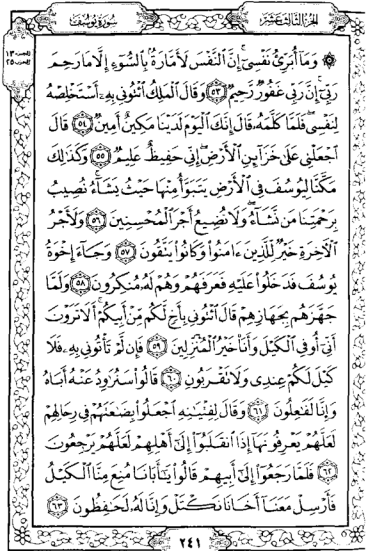 الجزء الثالث عشر
سورة يوسف
الجزء ١٣
الحزب ٢٥
۞ وَمَا أُبَرِّئُ نَفْسِي إِنَّ النَّفْسَ لَأَمَّارَةٌ بِالسُّوءِ إِلَّا مَا رَحِمَ
رَبِّي إِنَّ رَبِّي غَفُورٌ رَّحِيمٌ ٥٣ وَقَالَ الْمَلِكُ ائْتُونِي بِهِ أَسْتَخْلِصْهُ
لِنَفْسِي فَلَمَّا كَلَّمَهُ قَالَ إِنَّكَ الْيَوْمَ لَدَيْنَا مَكِينٌ أَمِينٌ ٥٤ قَالَ
اجْعَلْنِي عَلَى خَزَائِنِ الْأَرْضِ إِنِّي حَفِيظٌ عَلِيمٌ ٥٥ وَكَذَلِكَ
مَكَّنَّا لِيُوسُفَ فِي الْأَرْضِ يَتَبَوَّأُ مِنْهَا حَيْثُ يَشَاءُ نُصِيبُ
بِرَحْمَتِنَا مَن نَّشَاءُ وَلَا نُضِيعُ أَجْرَ الْمُحْسِنِينَ ٥٦ وَلَأَجْرُ
الْآخِرَةِ خَيْرٌ لِّلَّذِينَ ءَامَنُوا وَكَانُوا يَتَّقُونَ ٥٧ وَجَاءَ إِخْوَةُ
يُوسُفَ فَدَخَلُوا عَلَيْهِ فَعَرَفَهُمْ وَهُمْ لَهُ مُنكِرُونَ ٥٨ وَلَمَّا
جَهَّزَهُم بِجَهَازِهِمْ قَالَ ائْتُونِي بِأَخٍ لَّكُم مِّنْ أَبِيكُمْ أَلَا تَرَوْنَ
أَنِّي أُوفِي الْكَيْلَ وَأَنَا خَيْرُ الْمُنزِلِينَ ٥٩ فَإِن لَّمْ تَأْتُونِي بِهِ فَلَا
كَيْلَ لَكُمْ عِندِي وَلَا تَقْرَبُونِ ٦٠ قَالُوا سَنُرَاوِدُ عَنْهُ أَبَاهُ
وَإِنَّا لَفَاعِلُونَ ٦١ وَقَالَ لِفِتْيَانِهِ اجْعَلُوا بِضَاعَتَهُمْ فِي رِحَالِهِمْ
لَعَلَّهُمْ يَعْرِفُونَهَا إِذَا انقَلَبُوا إِلَى أَهْلِهِمْ لَعَلَّهُمْ يَرْجِعُونَ
٦٢ فَلَمَّا رَجَعُوا إِلَى أَبِيهِمْ قَالُوا يَا أَبَانَا مُنِعَ مِنَّا الْكَيْلُ
فَأَرْسِلْ مَعَنَا أَخَانَا نَكْتَلْ وَإِنَّا لَهُ لَحَافِظُونَ ٦٣
٢٤١